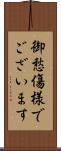 御愁傷様で
ございます